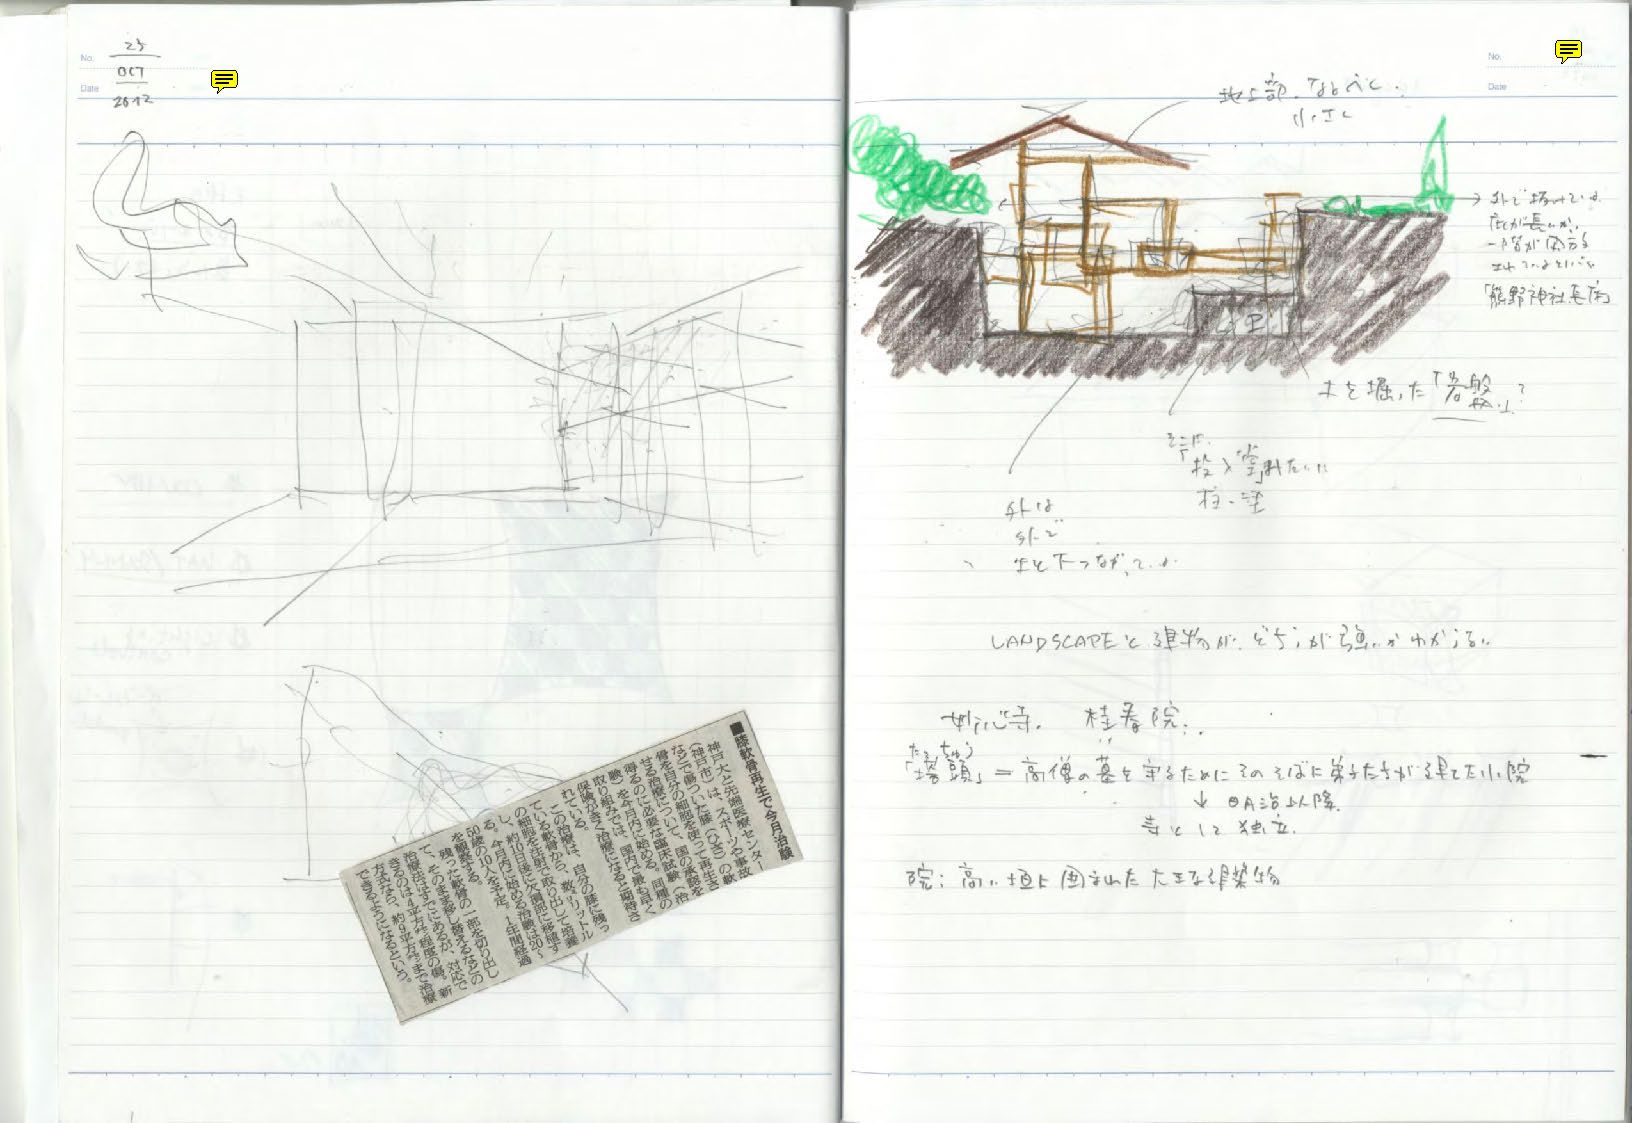 No.
23
OCT
Date
2012
■膝軟骨再生で今月治験
神戸大と先端医療センター
(神戸市)は、スポーツや事故
などで傷ついた膝(ひざ)の軟
骨を自分の細胞を使って再生さ
せる治療について、国の承認を
得るのに必要な臨床試験(治
験)を今月内に始める。同種の
取り組みでは、国内で最も早く
保険がきく治療になると期待さ
れている。
この治療は、自分の膝に残っ
ている軟骨から、数ミリットル
の細胞を注射で取り出して培養
し、約10日後に欠損部に移植す
る。今月内に始める治験は20〜
60歳の10人を予定。1年間経過
を観察する。
残った軟骨の一部を切り出し
て、そのまま移し替えるなどの
治療法はすでにあるが、対応で
きるのは4平方㌢程度の傷。新
方式なら、約9平方㌢まで治療
できるようになるという。
No.
Date
地上部、なるべく
小さく
「熊野神社長床」
土を掘った「岩盤」?
P
柱・塗
外は
外で
土と下つながっている
LANDSCAPEと建物が、どちらが強いかわからない
妙心寺. 桂春院.
たっちゅう
「塔頭」=高僧の墓を守るためにそのそばに弟子たちが建てた小院
↓ 明治以降.
寺として独立.
院:高い垣に囲まれた大きな建築物